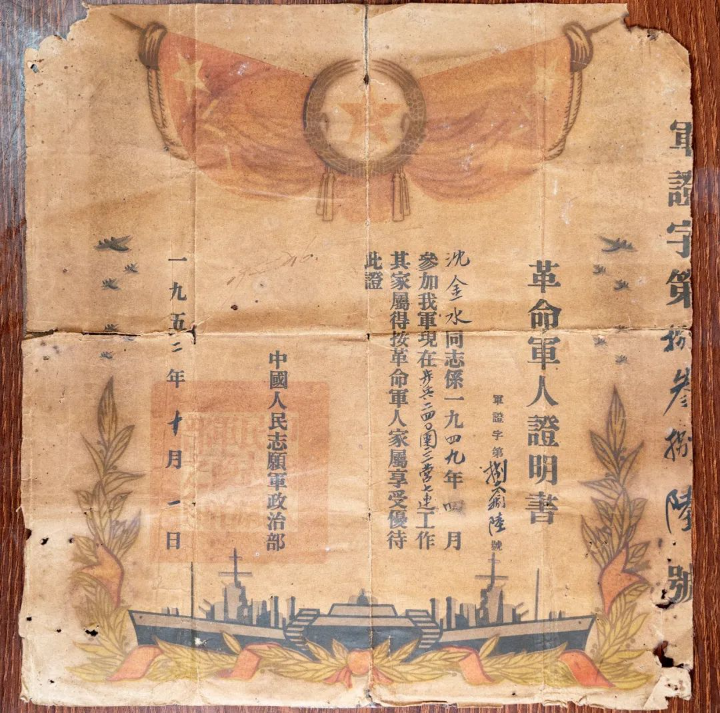 軍證字第捌叁捌陸號
革命軍人證明書
軍證字第捌叁捌陸號
沈金水同志係一九四九年四月
參加我軍現在步兵二四〇團三營七連工作
其家屬得按革命軍人家屬享受優待
此證
中國人民志願軍政治部
一九五二年十月一日